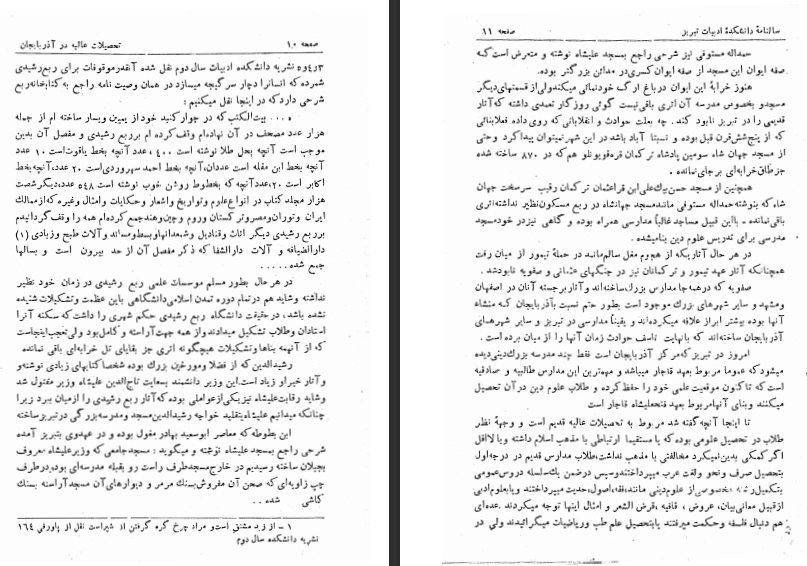 صفحه ۱۰ تحصیلات عالیه در آذربایجان
۳ر۴وه نشریه دانشکده ادبیات سال دوم نقل شده آنقدرموقوفات برای ربع‌رشیدی
شمرده که انسانرا دچار سرگیجه میسازد در همان وصیت نامه راجع به کتابخانه‌ربع
شرحی دارد که در اینجا نقل میکنیم :
» ... بیت‌الکتب‌که در جوار گنبد خود از یمین ویسار ساخته ام از جمله
هزار عدد مصحف در آن نهاده‌ام وقف کرده ام بر ربع رشیدی و مفصل آن بدین
موجب است آنچه بحل طلا نوشته است ۴۰۰ ، عدد آنچه بخط یاقوت‌است ۱۰ عدد
آنچه بخط ابن مقله است عددان، آنچه بخط احمد سهروردی‌است ۲۰ عدد، آنچه‌بخط
اکابر است ۲۰، عدد آنچه که بخطوط روشن خوب نوشته است ۵۴۸ عدد، دیگر شصت
هزار مجلد کتاب در انواع علوم وتواریخ واشعار وحکایات وامثال وغیره که از ممالک
ایران وتوران ومصر و ترکستان وروم وچین وهند جمع کرده‌ام همه را وقف گردانیدم
بر ربع رشیدی دیگر اثاث وقنادیل وشمعدانها وبسط ومساند وآلات طبخ وزیادی (۱)
دارالضیافه و آلات دارالشفا که ذکر مفصل آن از حد بیرون است و بسالها
جمع شده . . . . .
در هر حال بطور مسلم موسسات علمی ربع رشیدی در زمان خود نظیر
نداشته وشاید هم در تمام دوره تمدن اسلامی دانشگاهی باین عظمت و تشکیلات شنیده
نشده باشد، در حقیقت دانشگاه ربع رشیدی حکم شهری را داشت که سکنه آنرا
استادان وطلاب تشکیل میدادند واز همه جهت آراسته و کامل بود ولی تعجب اینجاست
که از آنهمه بناها وتشکیلات هیچگونه اثری جز بقایای تل خرابه‌ای باقی نمانده
رشیدالدین که از فضلا ومورخین بزرگ بوده شخصا کتابهای زیادی نوشته و
وآثار خیر او زیاد است. این وزیر دانشمند بسعایت تاج‌الدین علیشاه وزیر مقتول شد
وشاید رقابت علیشاه نیزیکی از عواملی بوده که آثار ربع رشیدی را ازمیان ببرد زیرا
چنانکه میدانیم علیشاه بتقلید خواجه رشیدالدین مسجد ومدرسه بزرگی در تبریز ساخته
ابن بطوطه که معاصر ابوسعید بهادر مغول بوده و در عهد وی بتبریز آمده
شرحی راجع بمسجد علیشاه نوشته و میگوید : مسجد جامعی که وزیر علیشاه معروف
بجیلان ساخته رسیدیم در خارج مسجد طرف راست رو بقبله مدرسه‌ای بود، در طرف
چپ زاویه‌ای که صحن آن مفروش بسنگ مرمر و دیوارهای آن مسجد آراسته بسنگ
کاشی شده . .
۱ – از زبد مشتق است و مراد چرخ کره گرفتن از شیر است نقل از پاورقی ۱۶۴
نشریه دانشکده سال دوم
سالنامهٔ دانشکدهٔ ادبیات تبریز صفحه ۱۱
حمداله مستوفی نیز شرحی راجع بمسجد علیشاه نوشته و متعرض است که
صفه ایوان این مسجد از صفه ایوان کسری در مدائن بزرگتر بوده.
هنوز خرابهٔ این ایوان در باغ ارگ خودنمائی میکند ولی از قسمتهای دیگر
مسجد و بخصوص مدرسه آن اثری باقی نیست گوئی روزگار تعمدی داشته که آثار
قدیمی را در تبریز نابود کند. چه بعلت حوادث و انقلاباتی که روی داده فعلا بنائی
که از پنج‌شش قرن قبل بوده و نسبتا آباد باشد در این شهر نمیتوان پیدا کرد وحتی
از مسجد جهان شاه سومین پادشاه ترکمان قره‌قویونلو هم که در ۸۷۰ ساخته شده
جز طاق خرابه‌ای برجای نمانده .
همچنین از مسجد حسن بیک علی ابن قراعثمان ترکمان رقیب سرسخت جهان
شاه که بنوشته حمداله مستوفی مانند مسجد جهانشاه در ربع مسکون نظیر نداشته اثری
باقی نمانده . با این قبیل مساجد غالباً مدارسی همراه بوده و گاهی نیز در خود مسجد
مدرسی برای تدریس علوم دین بنا میشده .
در هر حال آثاریکه از هجوم مغل سالم مانده در حملهٔ تیمور از میان رفت
همچنانکه آثار عهد تیمور و ترکمانان نیز در جنگهای عثمانی و صفویه نابود شد .
صفویه که در همه جا مدارس بزرگ ساخته‌اند وآثار برجسته آنان در اصفهان
ومشهد و سایر شهرهای بزرگ موجود است بطور حتم نسبت بآذربایجان که منشاء
آنها بوده بیشتر ابراز علاقه میکرده‌اند و یقیناً مدارسی در تبریز و سایر شهرهای
آذربایجان ساخته‌اند که بانهایت تاسف حوادث زمان آنها را از میان برده است .
امروز در تبریز که مرکز آذربایجان است فقط چند مدرسه بزرگ دینی دیده
میشود که عموما مربوط بعهد قاجار میباشد و مهمترین این مدارس طالبیه و صادقیه
است که تا کنون موقعیت علمی خود را حفظ کرده و طلاب علوم دین در آن تحصیل
میکنند وبنای آنها مربوط بعهد فتحعلیشاه قاجار است
تا اینجا آنچه گفته شد مربوط به تحصیلات عالیه قدیم است و وجههٔ نظر
طلاب در تحصیل علومی بوده که یا مستقیما ارتباطی با مذهب اسلام داشته ویا لااقل
اگر کمکی بدین نمیکرد مخالفتی با مذهب نداشت، طلاب مدارس قدیم در درجه اول
بتحصیل صرف ونحو ولغت عرب میپرداختند وسپس در ضمن یک سلسله دروس عمومی
بتکمیل رشته مخصوصی از علوم دینی مانند، فقه، اصول، حدیث میپرداختند ویا بعلوم ادبی
از قبیل معانی بیان، عروض ، قافیه ، قرض الشعر و امثال اینها توجه میکردند. عده‌ای
هم دنبال فلسفه وحکمت میرفتند یا بتحصیل علم طب و ریاضیات میگرائیدند ولی در